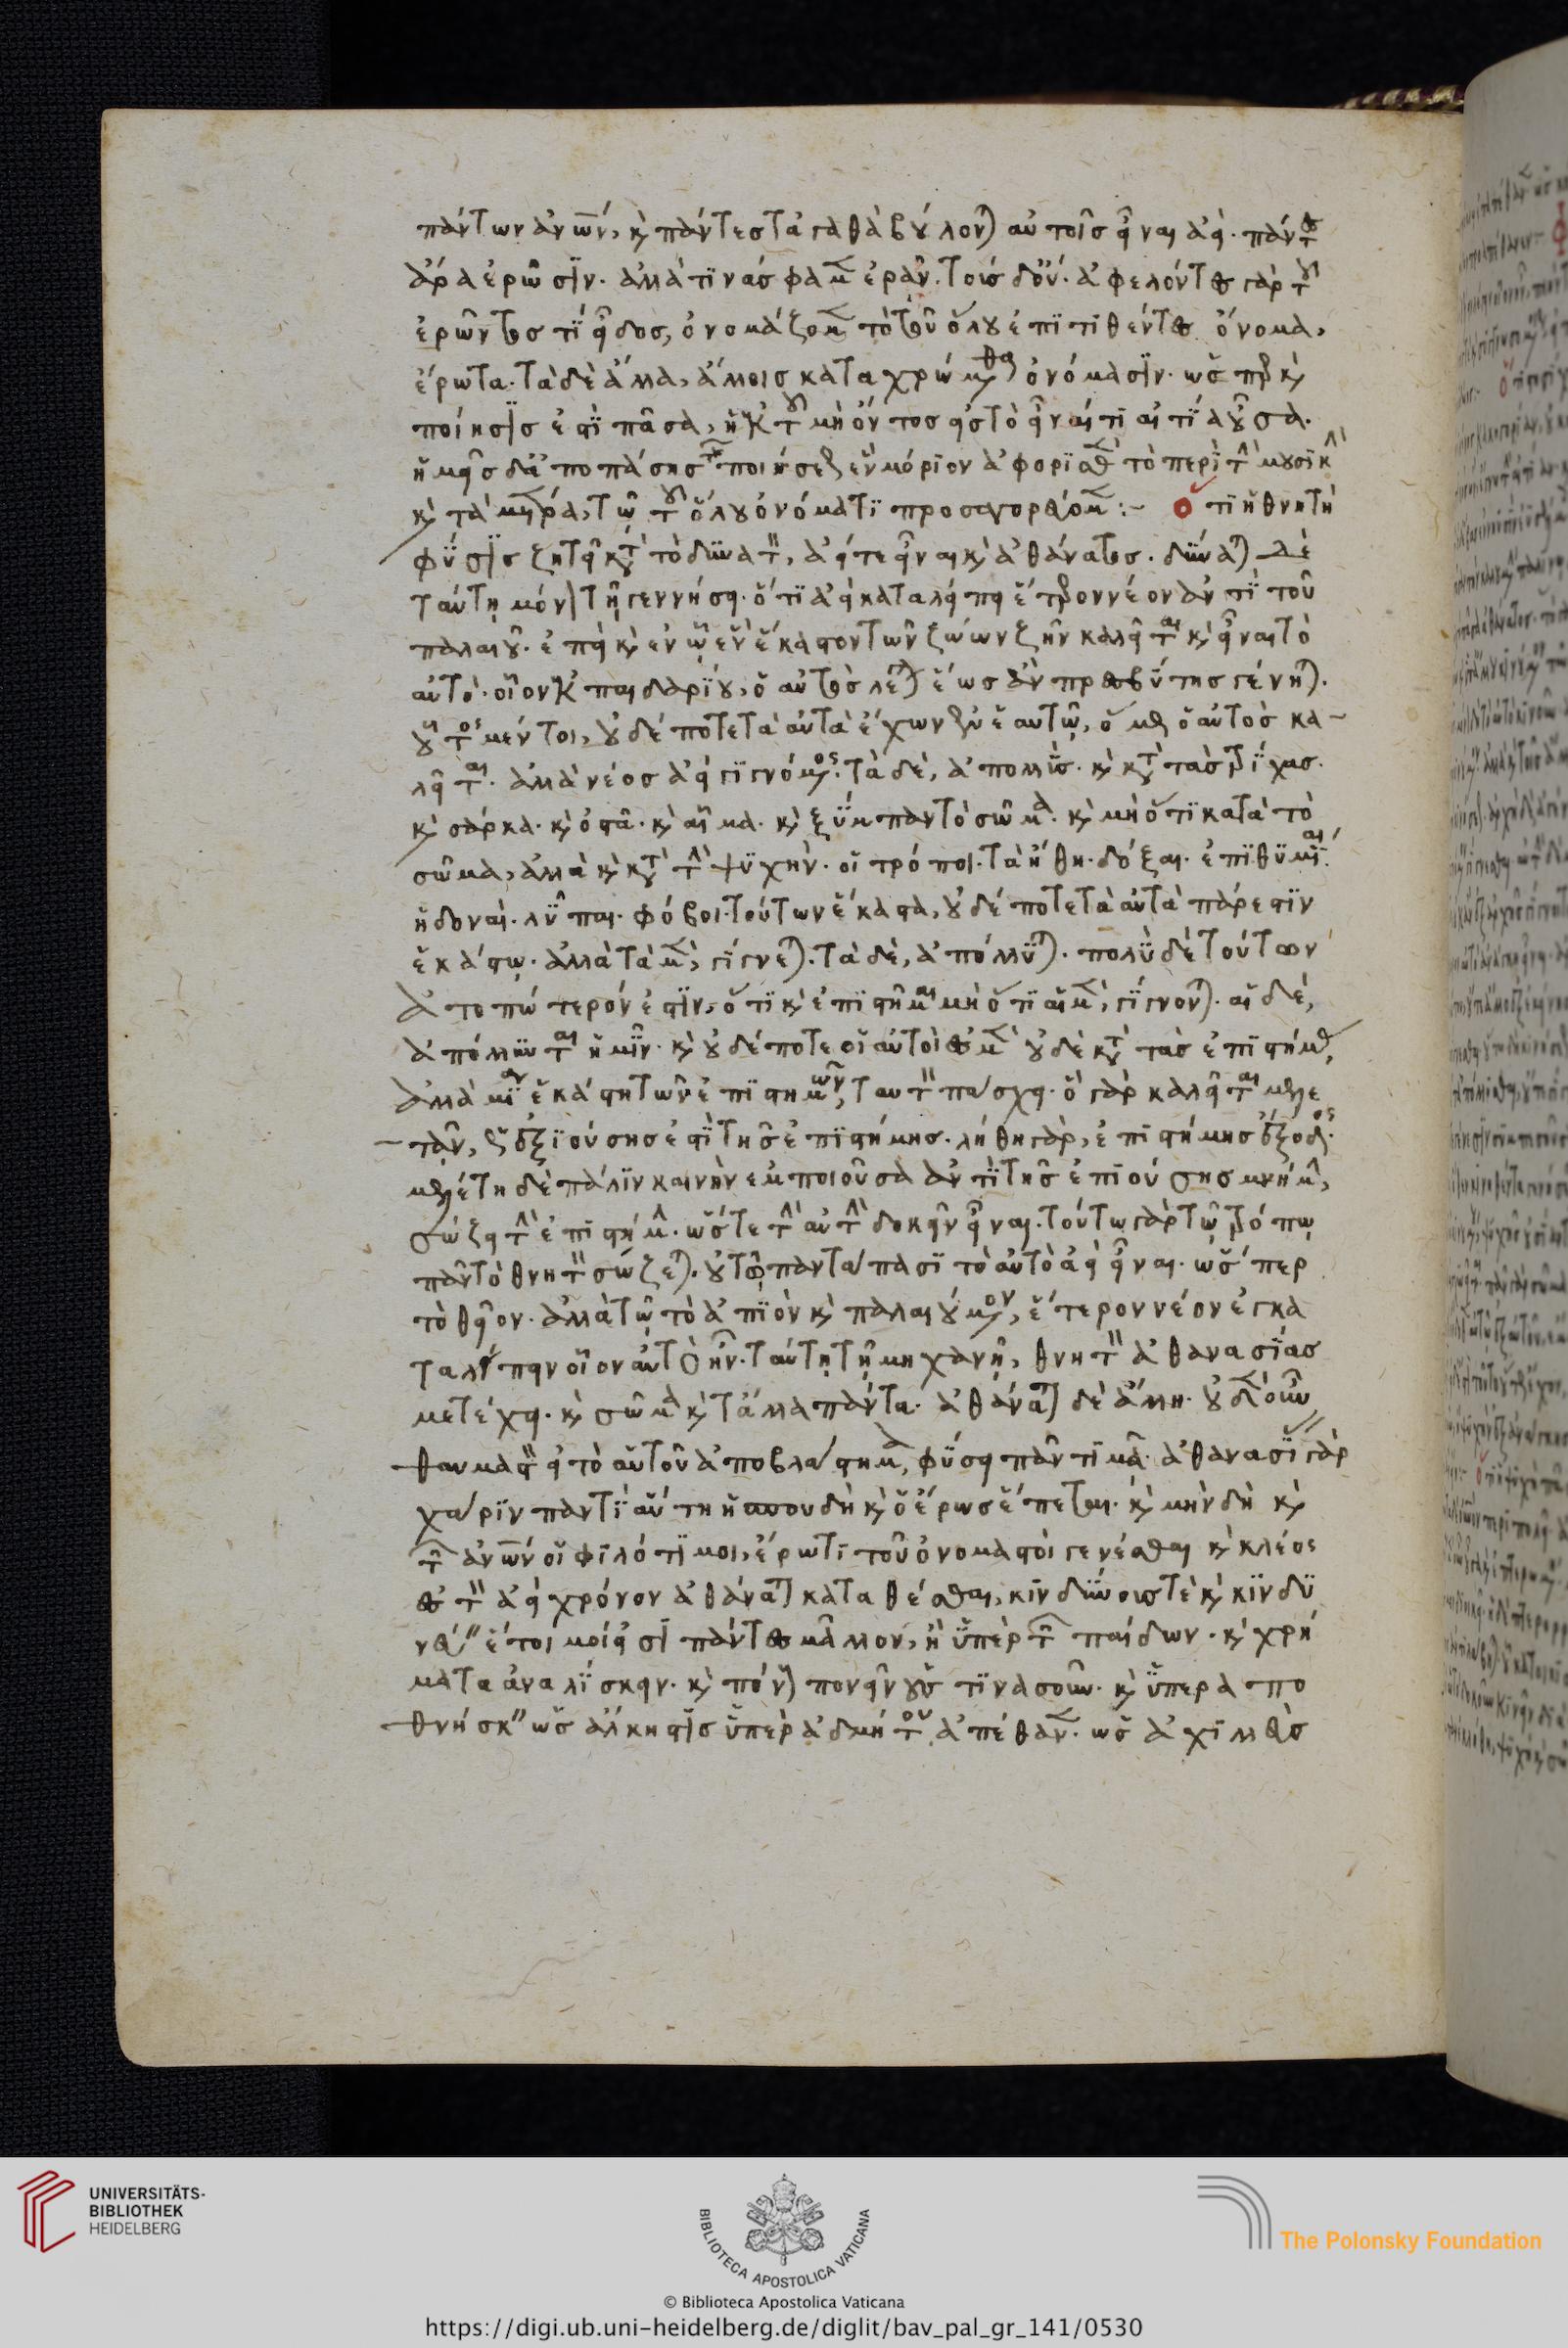 πάντων ἀνων, κὶ πάντες τἀγαθὰ βούλοντ αὐτοῖς εἶναι ἀεί. πάντες
ἄρα ἐρῶσιν. ἀλλά τινάς φαμεν ἐρᾶν. τοὺς δ' οὔ. ἀφελόντες γὰρ τοῦ
ἐρῶντος τὶ εἶδος, ὀνομάζομεν τὸ τοῦ ὅλου ἐπιτιθέντες ὄνομα,
ἔρωτα. τὰ δὲ ἄλλα, ἄλλοις καταχρώμεθα ὀνόμασιν. ὥσπερ κὶ
ποίησις ἐστὶ πᾶσα, ἡ ἐκ τοῦ μὴ ὄντος εἰς τὸ εἶναί τι αἰτία οὖσα.
ἡμεῖς δ' ἀπο πάσης τῆς ποιήσεως ἓν μόριον ἀφορίσαντες τὸ περὶ τὴν μουσικὴν
κὶ τὰ μέτρα, τῷ τοῦ ὅλου ὀνόματι προσαγορεύομεν :- ὅτι ἡ θνητὴ
φύσις ζητεῖ κατὰ τὸ δυνατὸν, ἀεί τε εἶναι κὶ ἀθάνατος. δύναται δὲ
ταύτῃ μόνον τῇ γεννήσει. ὅτι ἀεὶ καταλείπει ἕτερον νέον ἀντὶ τοῦ
παλαιοῦ. ἐπεὶ κὶ ἐν ᾧ ἓν ἕκαστον τῶν ζώων ζῆν καλεῖται κὶ εἶναι τὸ
αὐτό. οἷον ἐκ παιδαρίου, ὁ αὐτὸς λέγεται ἕως ἂν πρεσβύτης γένηται.
οὗτος μέντοι, οὐδέποτε τὰ αὐτὰ ἔχων ἐν ἑαυτῷ, ὅμως ὁ αὐτὸς κα-
λεῖται. ἀλλὰ νέος ἀεὶ γιγνόμενος. τὰ δὲ, ἀπολλύς. κὶ κατὰ τὰς τρίχας.
κὶ σάρκα. κὶ ὀστᾶ. κὶ αἷμα. κὶ ξύμπαν τὸ σῶμα. κὶ μὴ ὅτι κατὰ τὸ
σῶμα, ἀλλὰ κὶ κατὰ τὴν ψυχήν. οἱ τρόποι. τὰ ἤθη. δόξαι. ἐπιθυμίαι.
ἡδοναί. λῦπαι. φόβοι. τούτων ἕκαστα, οὐδέποτε τὰ αὐτὰ πάρεστιν
ἑκάστῳ. ἀλλὰ τὰ μὲν, γίγνεται. τὰ δὲ, ἀπόλλυται. πολὺ δὲ τούτων
ἀτοπώτερόν ἐστιν, ὅτι κὶ ἐπιστῆμαι μὴ ὅτι αἱ μὲν, γίγνονται. αἱ δὲ,
ἀπόλλυνται ἡμῖν. κὶ οὐδέποτε οἱ αὐτοί ἐσμεν οὐδὲ κατὰ τὰς ἐπιστήμας,
ἀλλὰ μία ἑκάστη τῶν ἐπιστημῶν, ταυτὸν πάσχει. ὃ γὰρ καλεῖται μελε
-τᾶν, ὡς ἐξιούσης ἐστὶ τῆς ἐπιστήμης. λήθη γὰρ, ἐπιστήμης ἔξοδος.
μελέτη δὲ πάλιν καινὴν ἐμποιοῦσα ἀντὶ τῆς ἐπιούσης μνήμην,
σώζει τὴν ἐπιστήμην. ὥστε τὴν αὐτὴν δοκεῖν εἶναι. τούτῳ γὰρ τῷ τρόπῳ
πᾶν τὸ θνητὸν σώζεται. οὐ τῷ παντάπασι τὸ αὐτὸ ἀεὶ εἶναι. ὥσπερ
τὸ θεῖον. ἀλλὰ τῷ τὸ ἀπιὸν κὶ παλαιούμενον, ἕτερον νέον ἐγκα
ταλείπειν οἷον αὐτὸ ἦν. ταύτῃ τῇ μηχανῇ, θνητὸν ἀθανασίας
μετέχει. κὶ σῶμα κὶ τἄλλα πάντα. ἀθάνατον δὲ ἄλλῃ. οὐδὲν οὖν
θαυμαστὸν εἰ τὸ αὑτοῦ ἀποβλάστημα, φύσει πᾶν τιμᾷ. ἀθανασίας γὰρ
χάριν παντὶ αὕτη ἡ σπουδὴ κὶ ὁ ἔρως ἕπεται. κὶ μὴν δὴ κὶ
τῶν ἀνων οἱ φιλότιμοι, ἔρωτι τοῦ ὀνομαστοὶ γενέσθαι κὶ κλέος
ἐς τὸν ἀεὶ χρόνον ἀθάνατον καταθέσθαι, κινδύνοις τὲ κὶ κινδυ
νεύειν ἕτοιμοί εἰσι πάντες μᾶλλον, ἢ ὑπὲρ τῶν παίδων. κὶ χρή
ματα ἀναλίσκειν. κὶ πόνους πονεῖν οὕς τινας οὖν. κὶ ὑπεραπο
θνήσκειν ὡς ἄλκηστις ὑπὲρ ἀδμήτου ἀπέθανεν. ὡς ἀχιλλεὺς
UNIVERSITÄTS-
BIBLIOTHEK
HEIDELBERG
BIBLIOTECA APOSTOLICA VATICANA
The Polonsky Foundation
© Biblioteca Apostolica Vaticana
https://digi.ub.uni-heidelberg.de/diglit/bav_pal_gr_141/0530